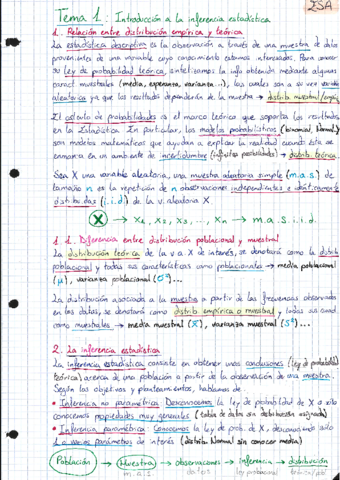 ISA
Tema 1: Introducción a la inferencia estadística
1. Relación entre distribución empírica y teórica
La estadística descriptiva es la observación a través de una muestra de datos
provenientes de una variable cuyo conocimiento estamos interesados. Para conocer
su ley de probabilidad teórica, sintetizamos la info obtenida mediante algunas
caract muestrales (media, esperanza, varianza...), los cuales son a su vez variable
aleatoria ya que los resultados dependerán de la muestra → distrib muestral/
El cálculo de probabilidades es el marco teórico que soporta los resultados
en la Estadística. En particular, los modelos probabilísticos (binomial, Normal)
son modelos matemáticos que ayudan a explicar la realidad cuando ésta se
enmarca en un ambiente de incertidumbre (infinitas posibilidades) → distrib teórica
Sea X una variable aleatoria, una muestra aleatoria simple (m.a.s.) de
tamaño n es la repetición de n observaciones independientes e idénticamente
distribuidas (i.i.d.) de la v. aleatoria X.
X → x₁, x₂, x₃, ..., xₙ → m.a.s. i.i.d.
1.1. Diferencia entre distribución poblacional y muestral
La distribución teórica de la v.a X de interés, se denotará como la distrib
poblacional y todas sus características como poblacionales → media poblacional
(μ), varianza poblacional (σ²)...
La distribución asociada a la muestra a partir de las frecuencias observadas
en los datos, se denotará como distrib empírica o muestral, todas sus caract
como muestrales → media muestral (x̄), varianza muestral (s²)...
2. La inferencia estadística
La inferencia estadística consiste en obtener unas conclusiones (ley de probabilidad
teórica) acerca de una población a partir de la observación de una muestra.
Según los objetivos y planteamientos, hablamos de
• Inferencia no paramétrica: Desconocemos la ley de probabilidad de X o solo
conocemos propiedades muy generales (tabla de datos sin distribución asignada)
• Inferencia paramétrica: Conocemos la ley de prob. de X, desconociendo solo
1 o varios parámetros de interés (distrib Normal sin conocer media)
Población → Muestra → observaciones → inferencia → distribución
m.a.s datos ley probabilidad